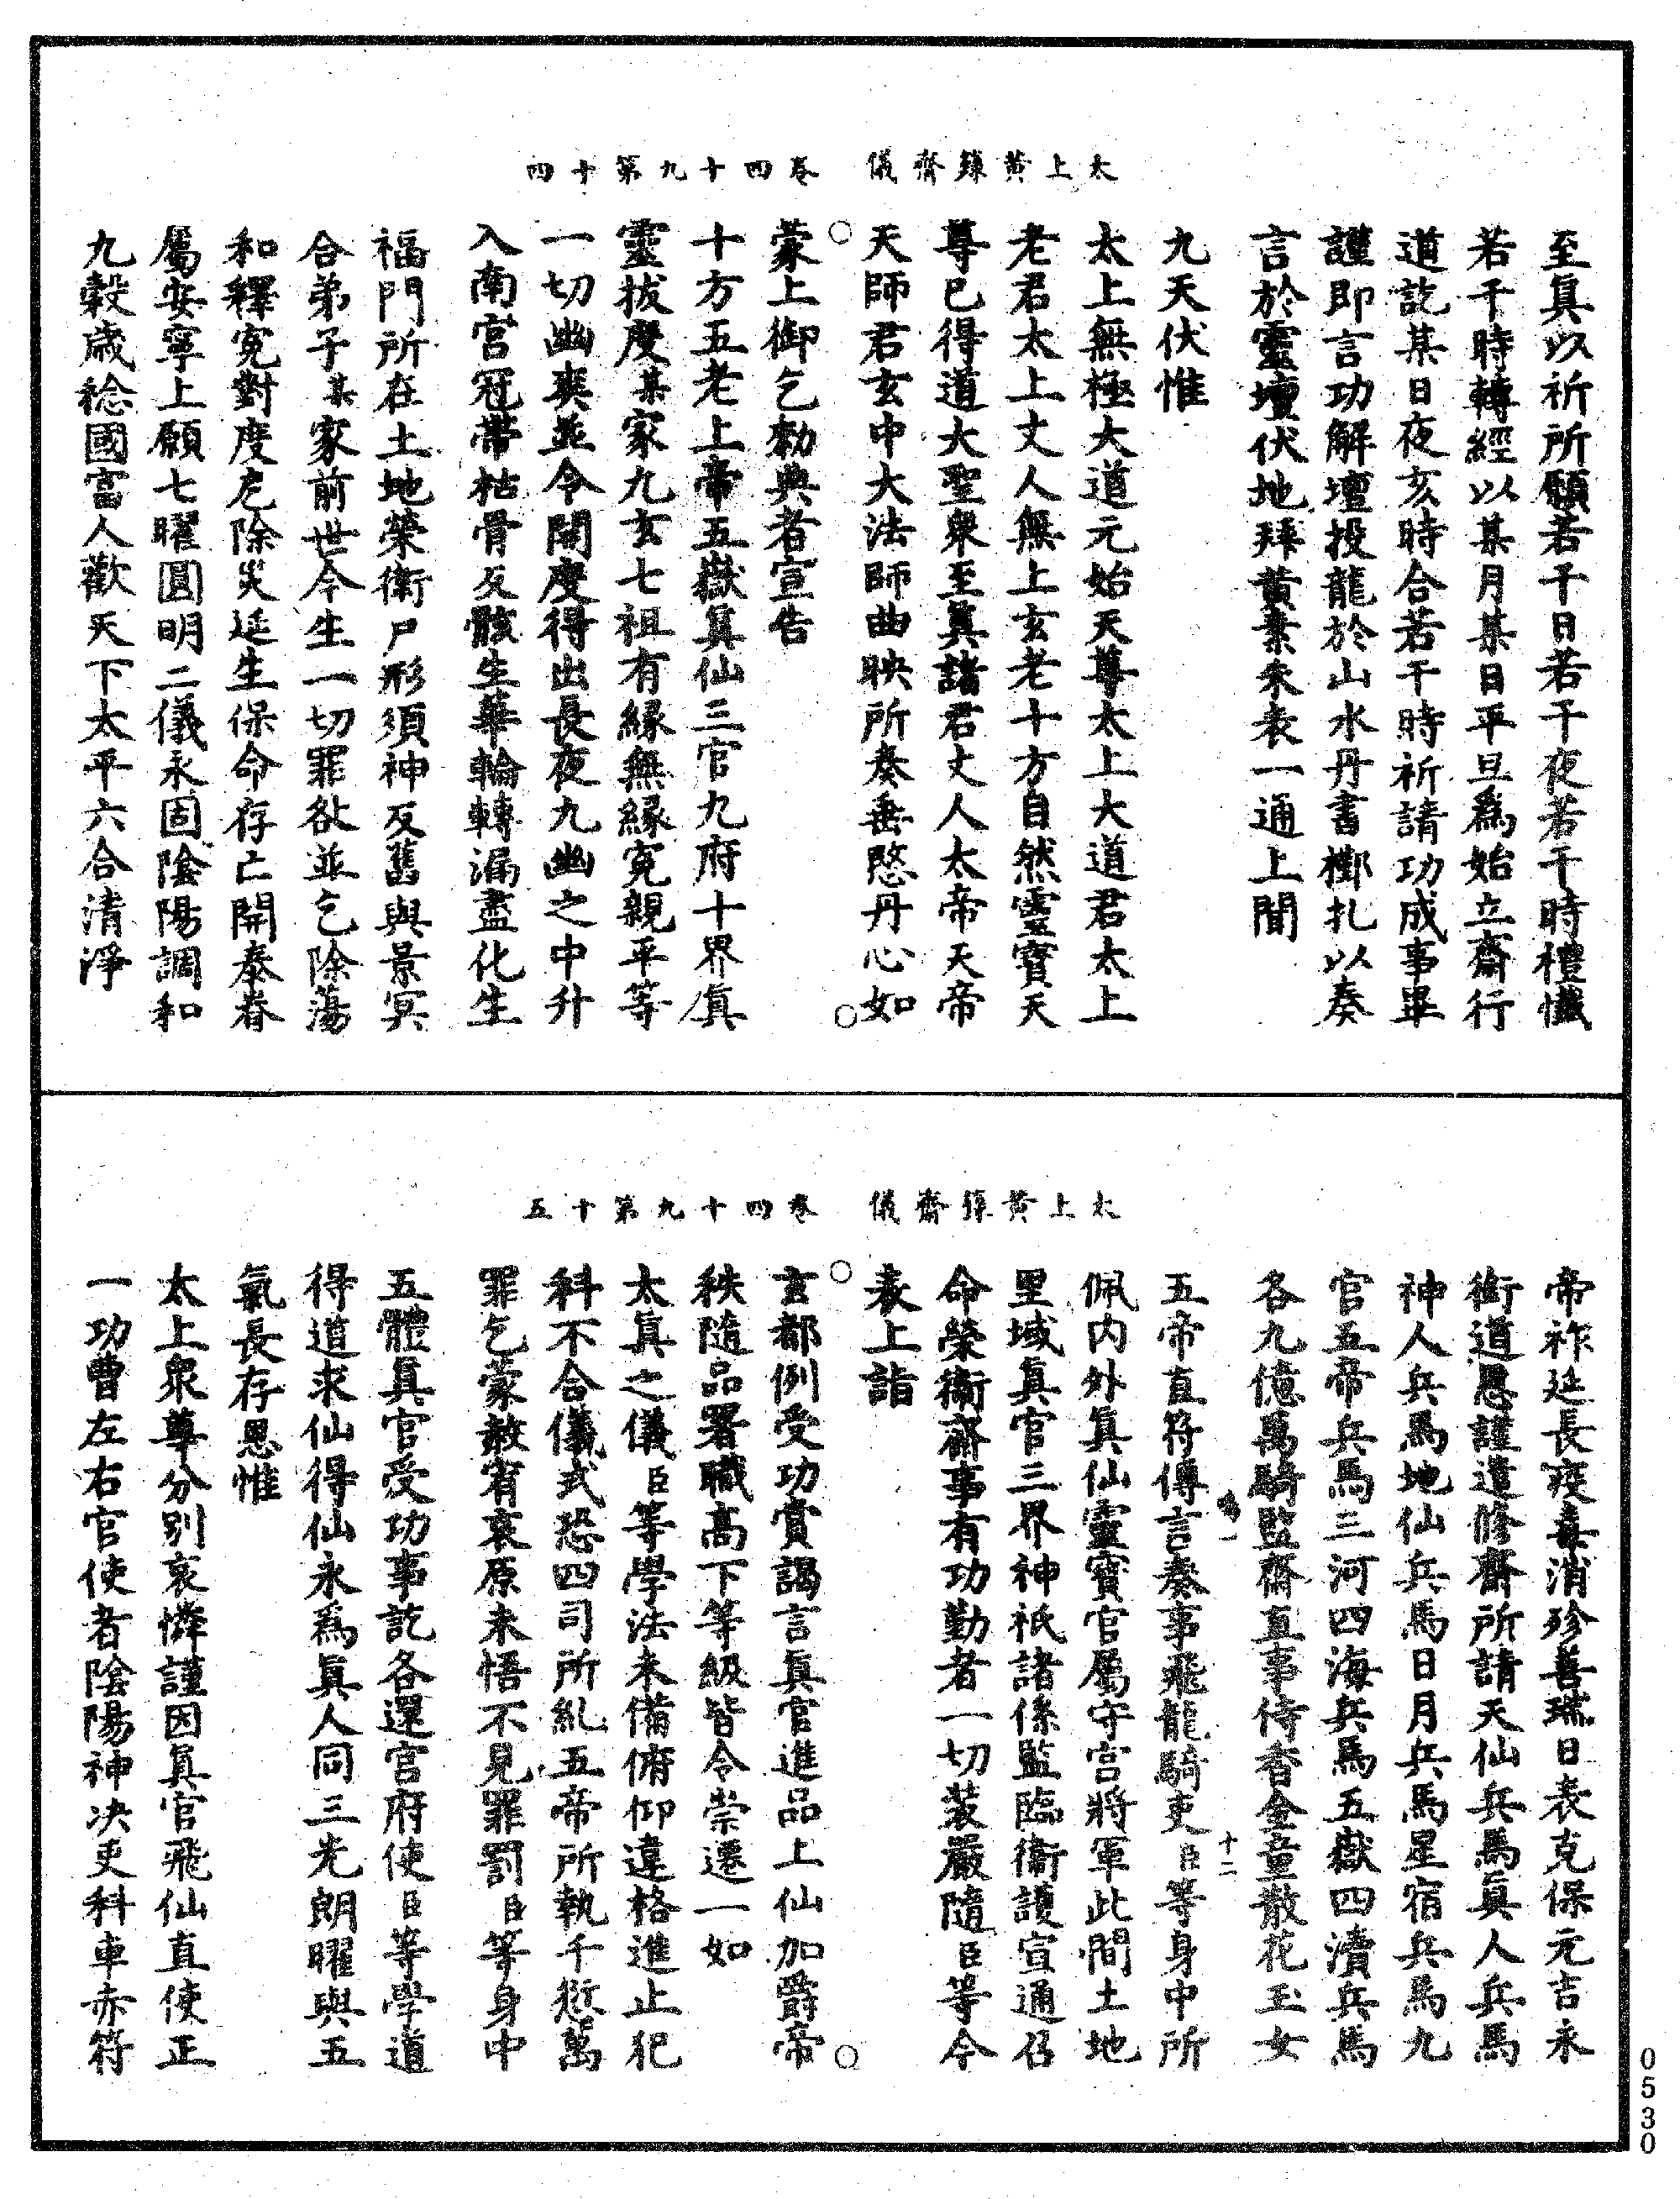 太上黃籙齋儀　卷四十九第十四
至眞以祈所願若干日若干夜若干時禮懺
若干時轉經以某月某日平旦爲始立齋行
道訖某日夜亥時合若干時祈請功成事畢
謹即言功解壇投龍於山水丹書槨札以奏
言於靈壇伏地拜黃素朱表一通上聞
九天伏惟
太上無極大道元始天尊太上大道君太上
老君太上丈人無上玄老十方自然靈寶天
尊已得道大聖衆至眞諸君丈人太帝天帝
天師君玄中大法師曲映所奏垂愍丹心如
蒙上御乞勑典者宣告
十方五老上帝五嶽眞仙三官九府十界眞
靈拔度某家九玄七祖有緣無緣寃親平等
一切幽爽並令開度得出長夜九幽之中升
入南宮冠帶枯骨反骸生華輪轉漏盡化生
福門所在土地榮衛尸形須神反舊與景冥
合弟子某家前世今生一切罪咎並乞除蕩
和釋寃對度厄除災延生保命存亡開泰眷
屬安寧上願七曜圓明二儀永固陰陽調和
九穀歲稔國富人歡天下太平六合清淨
太上黃籙齋儀　卷四十九第十五
帝祚延長疫毒消殄善瑞日表克保元吉永
銜道恩謹遣修齋所請天仙兵馬眞人兵馬
神人兵馬地仙兵馬日月兵馬星宿兵馬九
官五帝兵馬三河四海兵馬五嶽四瀆兵馬
各九億萬騎監齋直事侍香金童散花玉女
一　十二
五帝直符傳言奏事飛龍騎吏臣等身中所
佩内外眞仙靈寶官屬守宮將軍此間土地
里域眞官三界神祇諸係監臨衛護宣通召
命榮衛齋事有功勤者一切裝嚴隨臣等今
表上詣
玄都例受功賞謁言眞官進品上仙加爵帝
秩隨品署職高下等級皆令崇遷一如
太眞之儀臣等學法未備俯仰違格進止犯
科不合儀式恐四司所糺五帝所執千愆萬
罪乞蒙赦宥哀原未悟不見罪罰臣等身中
五體眞官受功事訖各還宮府使臣等學道
得道求仙得仙永爲眞人同三光朗曜與五
氣長存恩惟
太上衆尊分別哀憐謹因眞官飛仙直使正
一功曹左右官使者陰陽神决吏科車赤符
0530